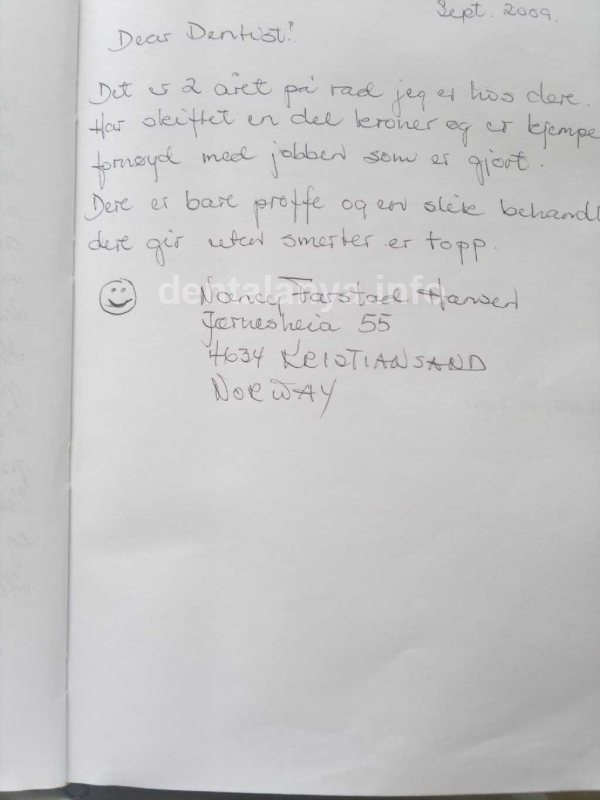 Sept. 2009.
Dear Dentist!
Det er 2 året på rad jeg er hos dere.
Har skiftet en del kroner og er kjempe
fornøyd med jobben som er gjort.
Dere er bare proffe og en slik behandl
dere gir uten smerter er topp.
dentalanys.info
Nancy Farstad Hansen
Jærnesheia 55
4634 KRISTIANSAND
NORWAY